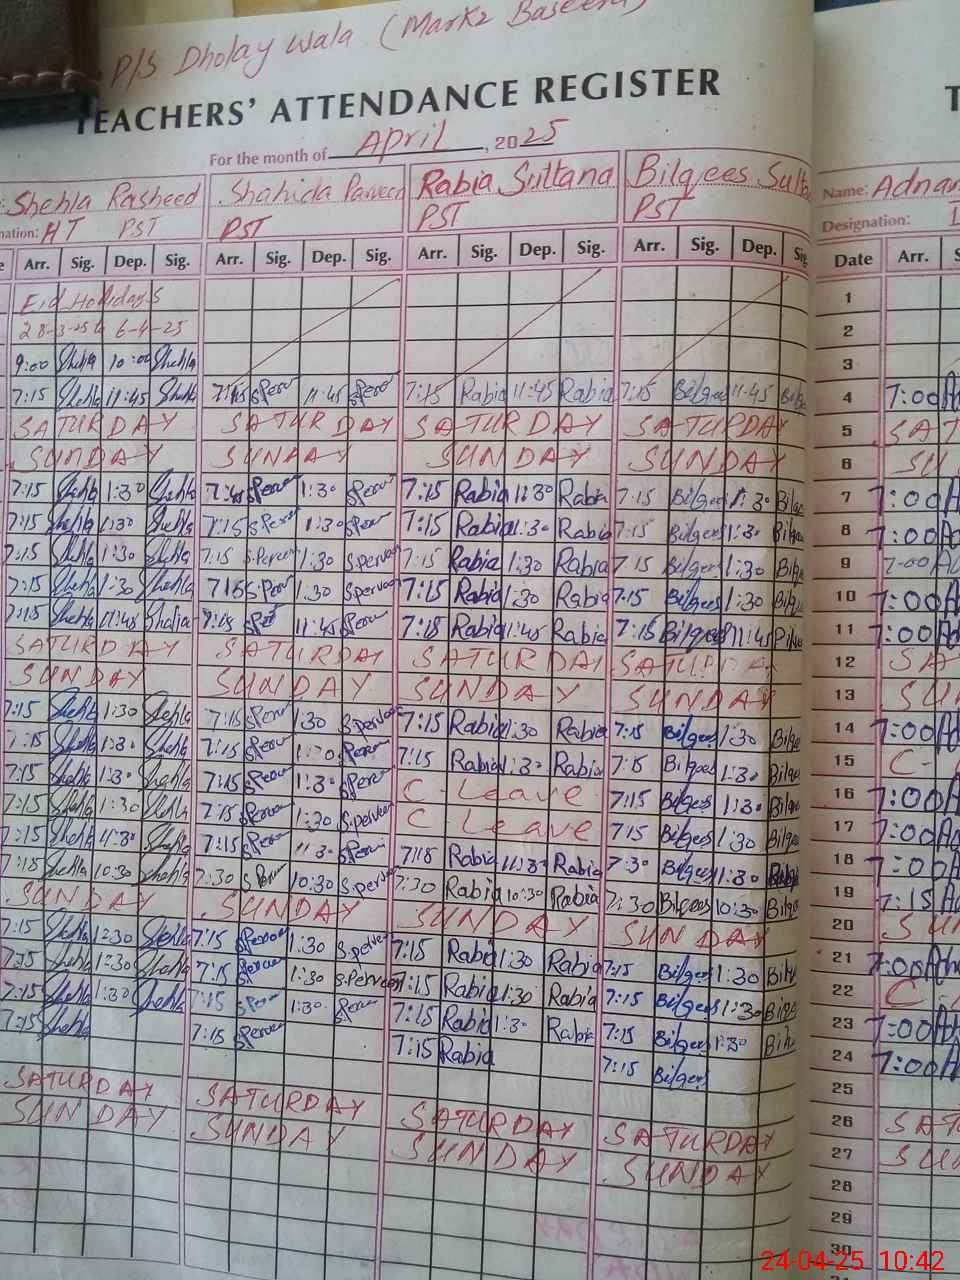 P/S Dholay Wala (Markz Baseera)
TEACHERS' ATTENDANCE REGISTER
For the month of April, 2025
Shehla Rasheed Shahida Parveen Rabia Sultana Bilqees Sult Name: Adnan
nation: HT PST PST PST PST Designation:
Arr. Sig. Dep. Sig. Arr. Sig. Dep. Sig. Arr. Sig. Dep. Sig. Arr. Sig. Dep. Sig Date Arr.
Eid Holidays 1
28-3-25 to 6-4-25 2
9:00 Shehla 10:00 Shehla 3
7:15 Shehla 11:45 Shehla 7:15 S.Perveen 11:45 S.Perveen 7:15 Rabia 11:45 Rabia 7:15 Bilqees 11:45 4 7:00
SATURDAY SATURDAY SATURDAY SATURDAY 5 SAT
SUNDAY SUNDAY SUNDAY SUNDAY 6 SU
7:15 Shehla 1:30 Shehla 7:15 1:30 7:15 Rabia 1:30 Rabia 7:15 Bilqees 1:30 7 7:00
7:15 Shehla 1:30 Shehla 7:15 1:30 7:15 Rabia 1:30 Rabia 7:15 Bilqees 1:30 8 7:00
7:15 Shehla 1:30 Shehla 7:15 S.Perveen 1:30 S.Perveen 7:15 Rabia 1:30 Rabia 7:15 Bilqees 1:30 9 7:00
7:15 Shehla 1:30 Shehla 7:15 1:30 S.Perveen 7:15 Rabia 1:30 Rabia 7:15 Bilqees 1:30 10 7:00
7:15 Shehla 11:45 7:15 11:45 7:15 Rabia 11:45 Rabia 7:15 Bilqees 11:45 11 7:00
SATURDAY SATURDAY SATURDAY SATURDAY 12 SA
SUNDAY SUNDAY SUNDAY SUNDAY 13 SU
7:15 Shehla 1:30 Shehla 7:15 1:30 S.Perveen 7:15 Rabia 1:30 Rabia 7:15 Bilqees 1:30 14 7:00
7:15 Shehla 1:30 Shehla 7:15 1:30 7:15 Rabia 1:30 Rabia 7:15 Bilqees 1:30 15 C-
7:15 Shehla 1:30 Shehla 7:15 1:30 C-Leave 7:15 Bilqees 1:30 16 7:00
7:15 Shehla 1:30 7:15 1:30 S.Perveen C-Leave 7:15 Bilqees 1:30 17 7:00
7:15 Shehla 11:30 Shehla 7:15 11:30 7:15 Rabia 11:30 Rabia 7:30 Bilqees 11:30 18 7:00
7:15 Shehla 10:30 Shehla 7:30 10:30 S.Perveen 7:30 Rabia 10:30 Rabia 7:30 Bilqees 10:30 19 7:15
SUNDAY SUNDAY SUNDAY SUNDAY 20 SU
7:15 Shehla 1:30 Shehla 7:15 1:30 S.Perveen 7:15 Rabia 1:30 Rabia 7:15 Bilqees 1:30 21 7:00
7:15 Shehla 1:30 Shehla 7:15 1:30 S.Perveen 7:15 Rabia 1:30 Rabia 7:15 Bilqees 1:30 22 C
7:15 Shehla 1:30 Shehla 7:15 1:30 7:15 Rabia 1:30 Rabia 7:15 Bilqees 1:30 23 7:00
7:15 Shehla 7:15 7:15 Rabia 7:15 Bilqees 24 7:00
25
SATURDAY SATURDAY SATURDAY SATURDAY 26 SAT
SUNDAY SUNDAY SUNDAY SUNDAY 27 SU
28
29
30
24-04-25 10:42